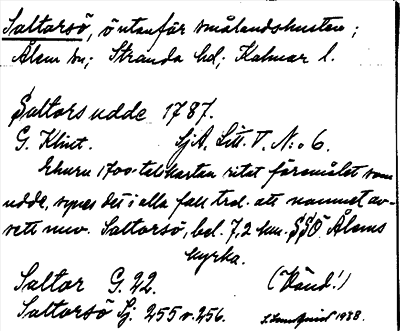 Saltorsö, ö utanför smålandskusten;
Ålem sn; Stranda hd; Kalmar l.
Saltors udde 1787.
G. Klint. SjA, Litt. V, N:o 6.
Ehuru 1700-talskartan ritat föremålet som
udde, synes det i alla fall trol. att namnet av-
sett nuv. Saltorsö, bel. 7,2 km. SSO Ålems
kyrka.
Saltor G. 22. (Vänd!)
Saltorsö Sj. 255 o. 256. 1938.